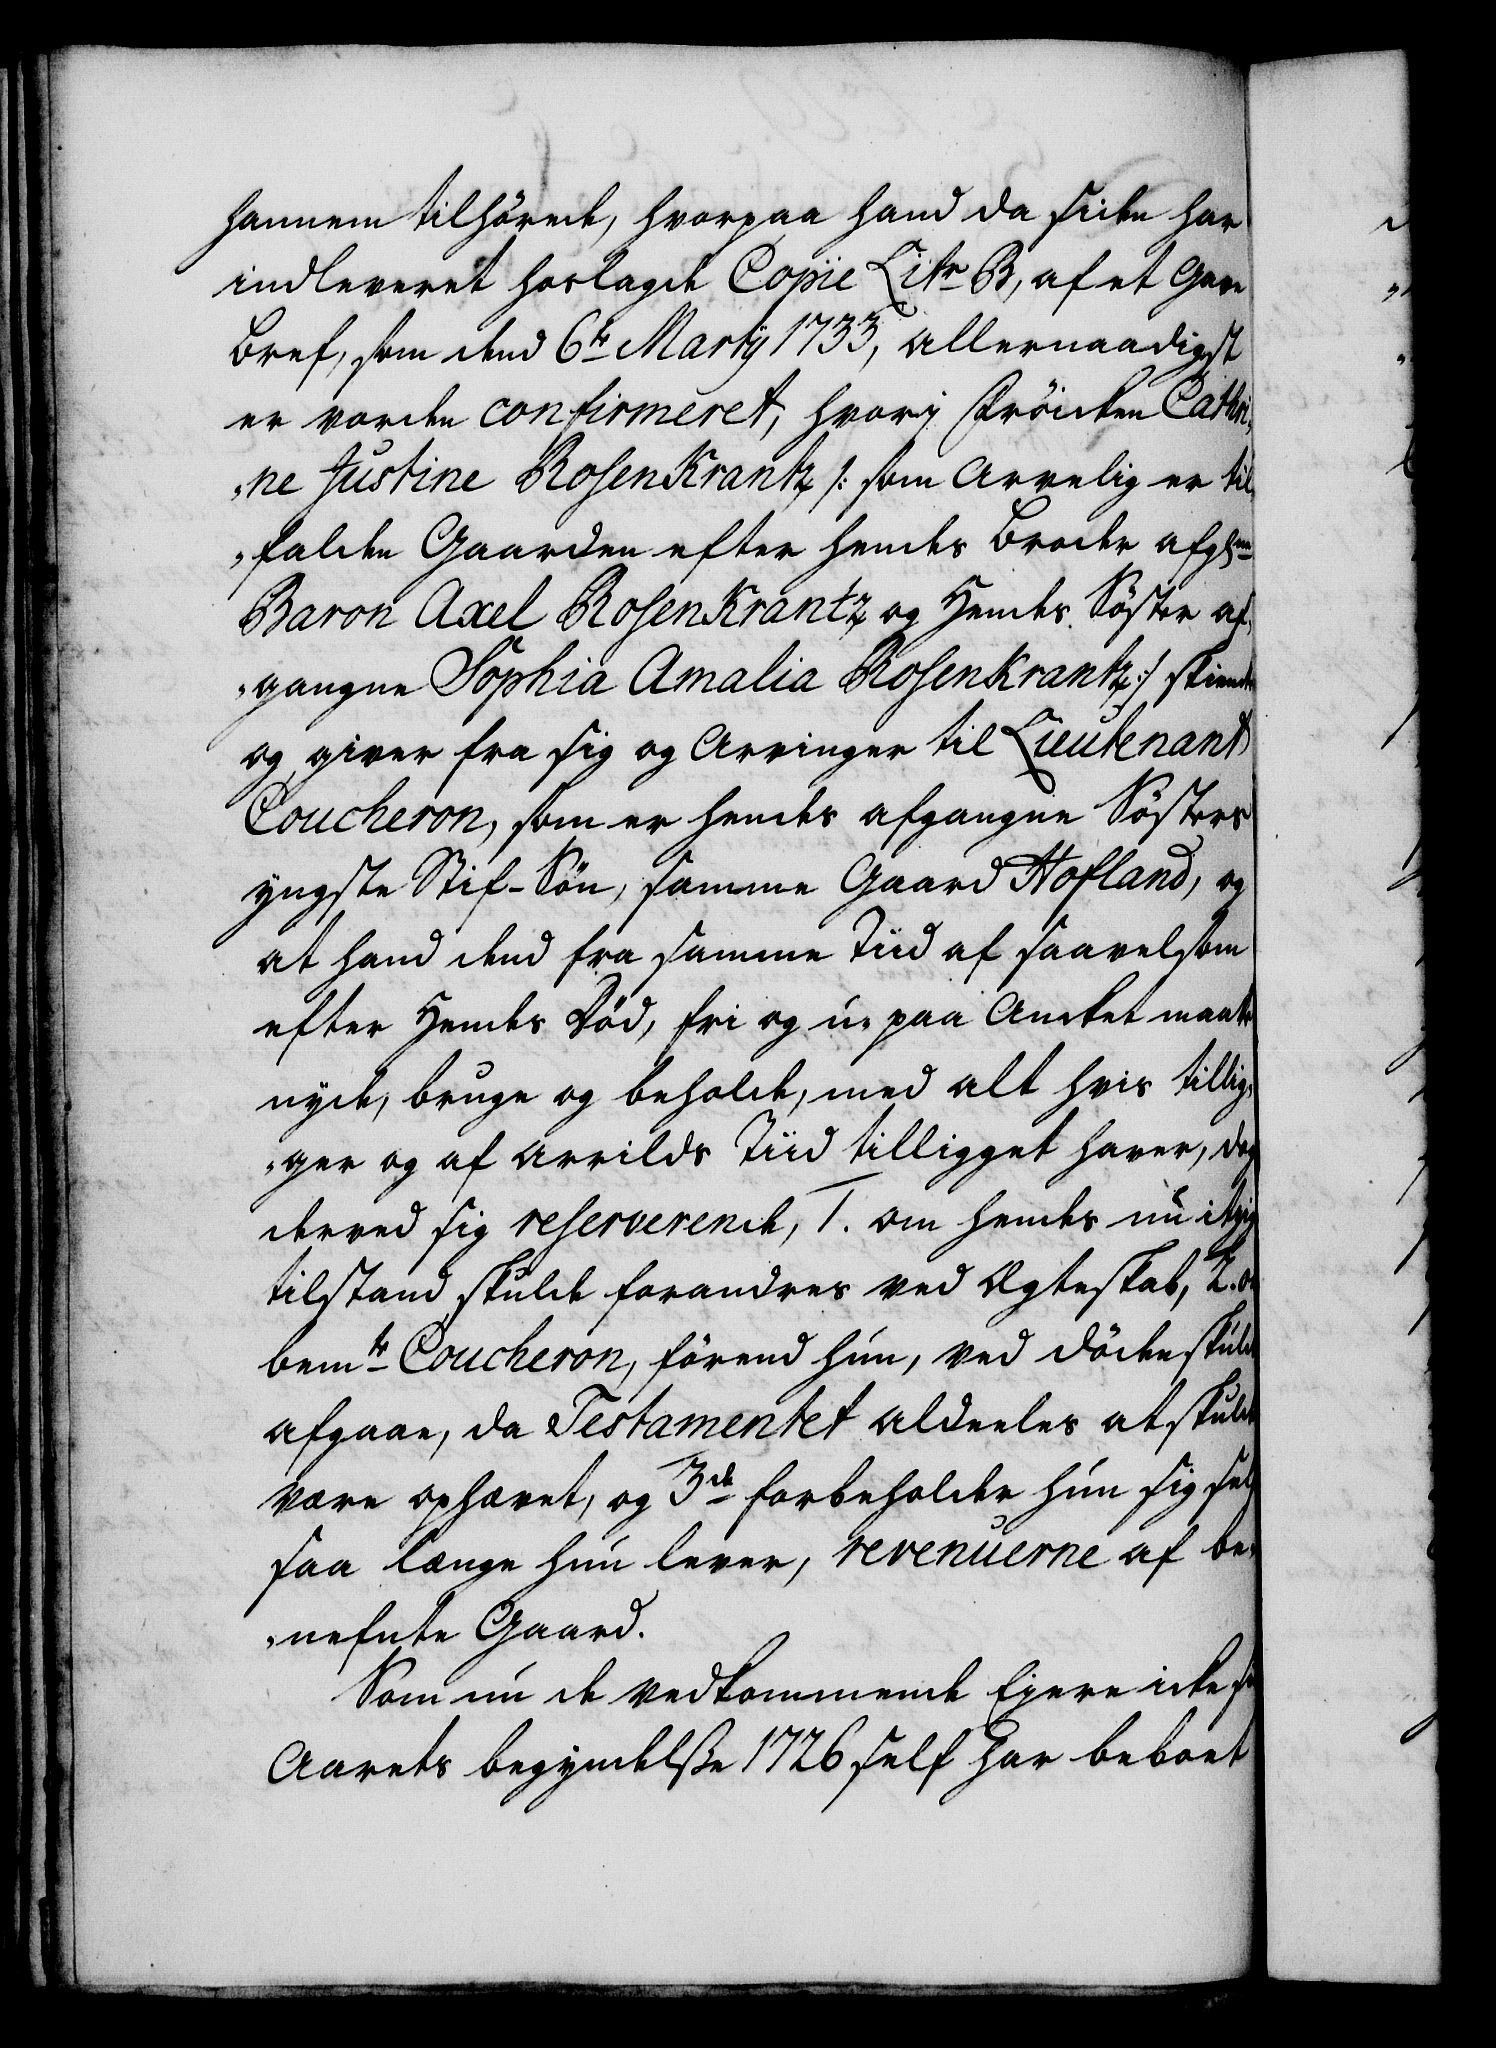 hannem tilhörede, hvorpaa hand da siden har
indleveret hoslagde Copiie Litr B, af et Gave
Bref, som dend 6te Martij 1733, allernaadigst
er vorden confirmeret, hvorj Fröicken Cathri„
„ne Justine RosenKrantz /: som Arvelig er til„
„falden Gaarden efter hendes Broder afgl:ne
Baron Axel RosenKrantz og Hendes Söster af„
„gangne Sophia Amalia RosenKrantz :/ skiencker
og giver fra sig og Arvinger til Lieutenant
Coucheron, som er hendes afgangne Sösters
yngste Stif-Sön, samme Gaard Hofland, og
at hand dend fra samme Tiid af saavelsom
efter Hendes Död, fri og u-paa Ancket maatte
nyde, bruge og beholde, med alt hvis tillig„
„ger og af Arrilds Tiid tilligget haver, dog
derved sig reserverende, 1. om hendes nu
tilstand skulde forandres ved Ægteskab, 2.
bemte Coucheron, förend hun, ved döden skulde
afgaae, da Testamentet aldeeles at skulde
være ophævet, og 3de forbeholder hun sig self
saa længe hun lever, revenuerne af be„
„nefnte Gaard.
Som nu de vedkommende Ejere icke
Aarets begyndelsse 1726 self har beboet